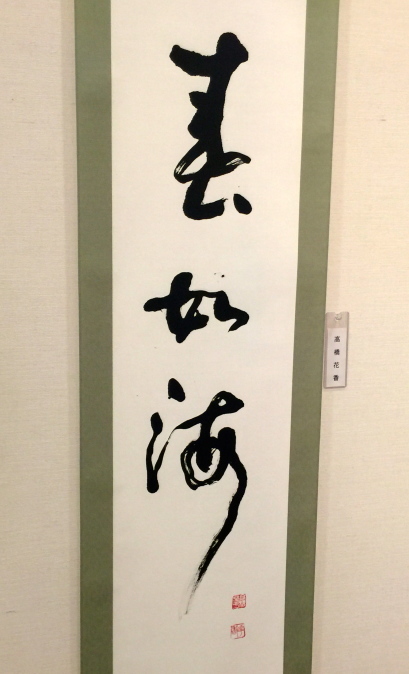 春如海
高橋花香